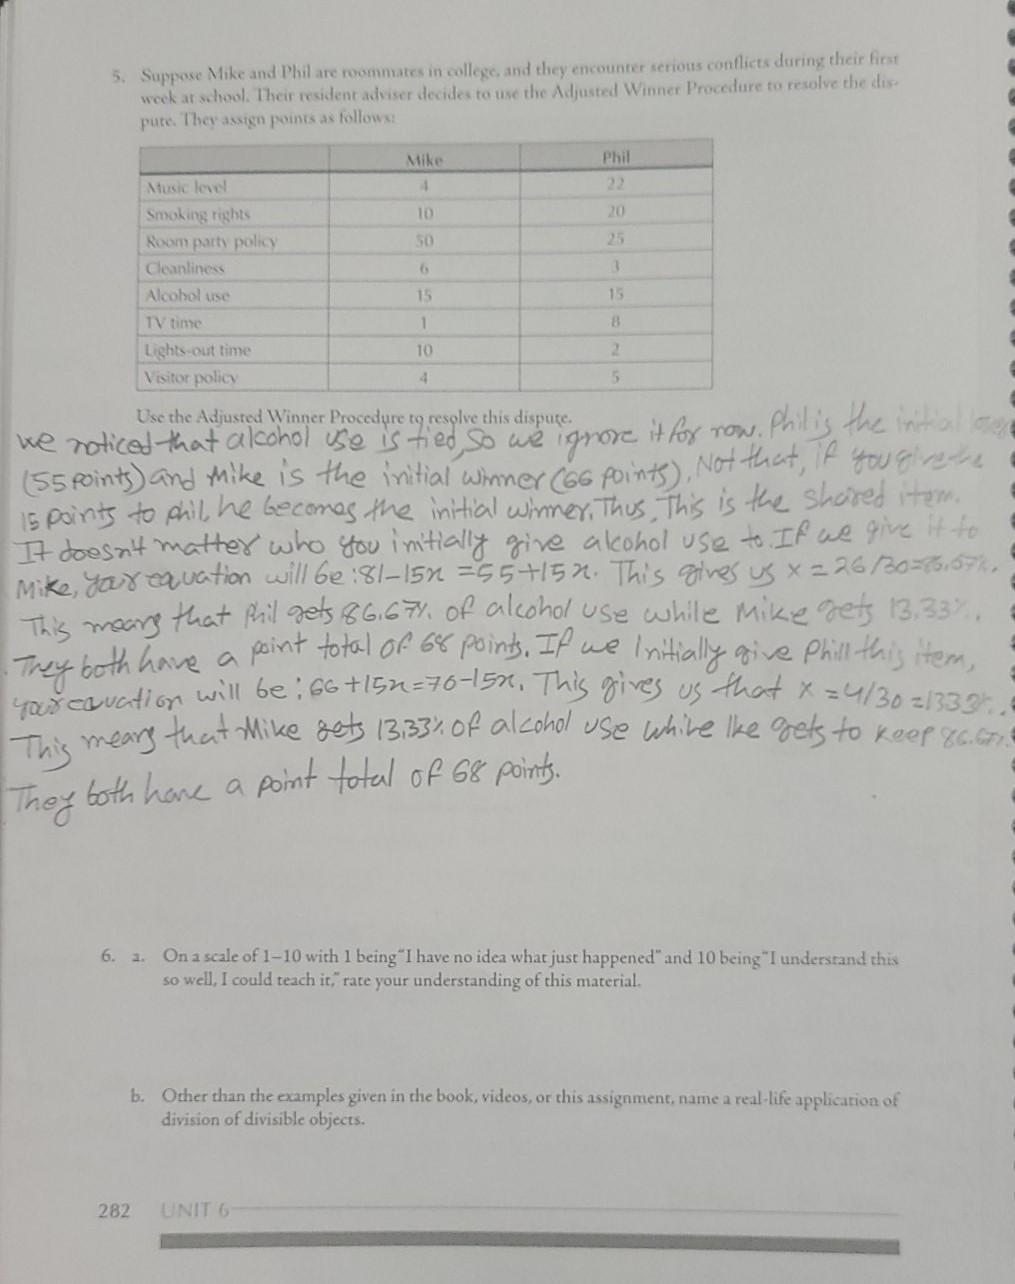 5. Suppose Mike and Phil are roommates in college, and they encounter serious conflicts during their first
week at school. Their resident adviser decides to use the Adjusted Winner Procedure to resolve the dis-
pute. They assign points as follows:
Mike Phil
Music level 4 22
Smoking rights 10 20
Room party policy 50 25
Cleanliness 6 3
Alcohol use 15 15
TV time 1 8
Lights-out time 10 2
Visitor policy 4 5
Use the Adjusted Winner Procedure to resolve this dispute.
we noticed that alcohol use is tied, so we ignore it for now. Phil is the initial loser
(55 points) and Mike is the initial winner (66 points). Not that, if you give the
15 points to phil, he becomes the initial winner. Thus, This is the shared item.
It doesn't matter who you initially give alcohol use to. If we give it to
Mike, your equation will be: 81-15x = 55+15x. This gives us x = 26/30=86.67%.
This means that Phil gets 86.67% of alcohol use while Mike gets 13.33%.
They both have a point total of 68 points. If we Initially give Phill this item,
your equation will be: 66+15x=70-15x. This gives us that x = 4/30 =1333%.
This means that Mike gets 13.33% of alcohol use while Ike gets to keep 86.67%.
They both have a point total of 68 points.
6. a. On a scale of 1–10 with 1 being "I have no idea what just happened" and 10 being "I understand this
so well, I could teach it," rate your understanding of this material.
b. Other than the examples given in the book, videos, or this assignment, name a real-life application of
division of divisible objects.
282 UNIT 6